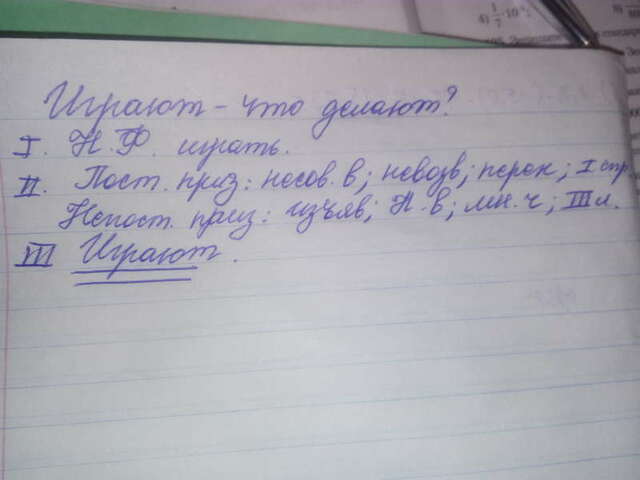 4) 1/7 · 10
Играют - что делают?
I. Н.Ф. играть.
II. Пост. приз: несов. в; невозв; перех; I спр
Непост. приз: изъяв; Н.в; мн.ч; III л.
III Играют.